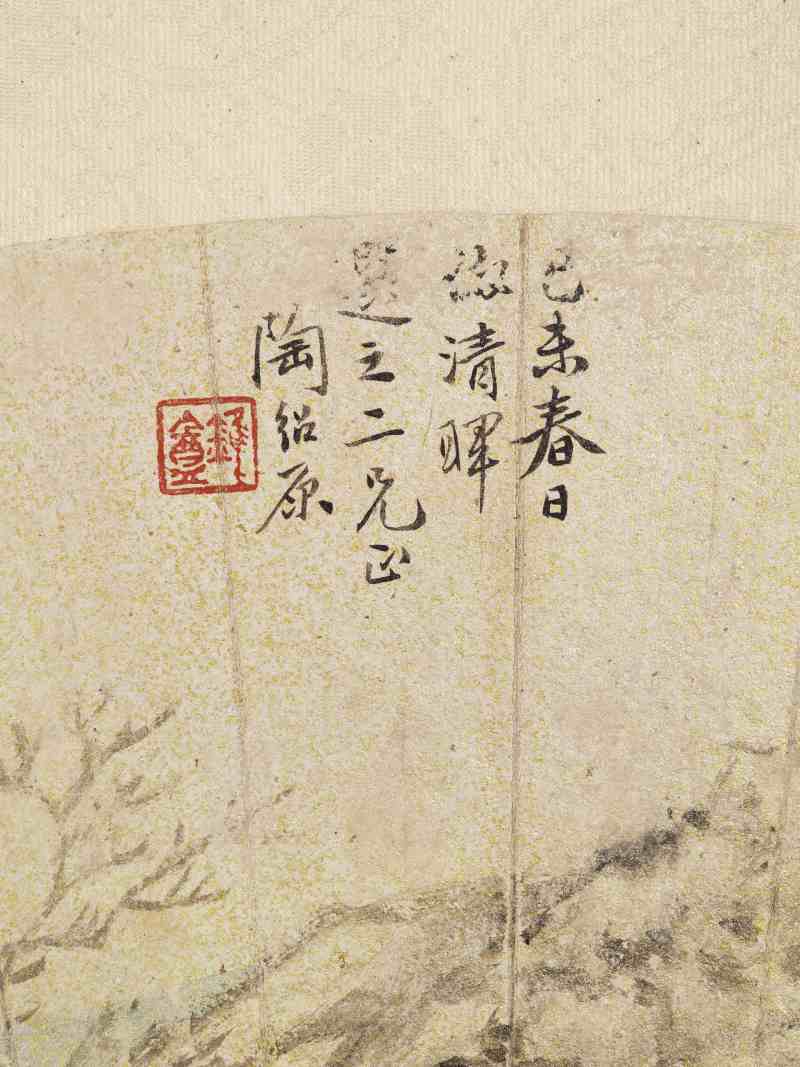 己未春日
仿清暉
選之二兄正
陶紹原